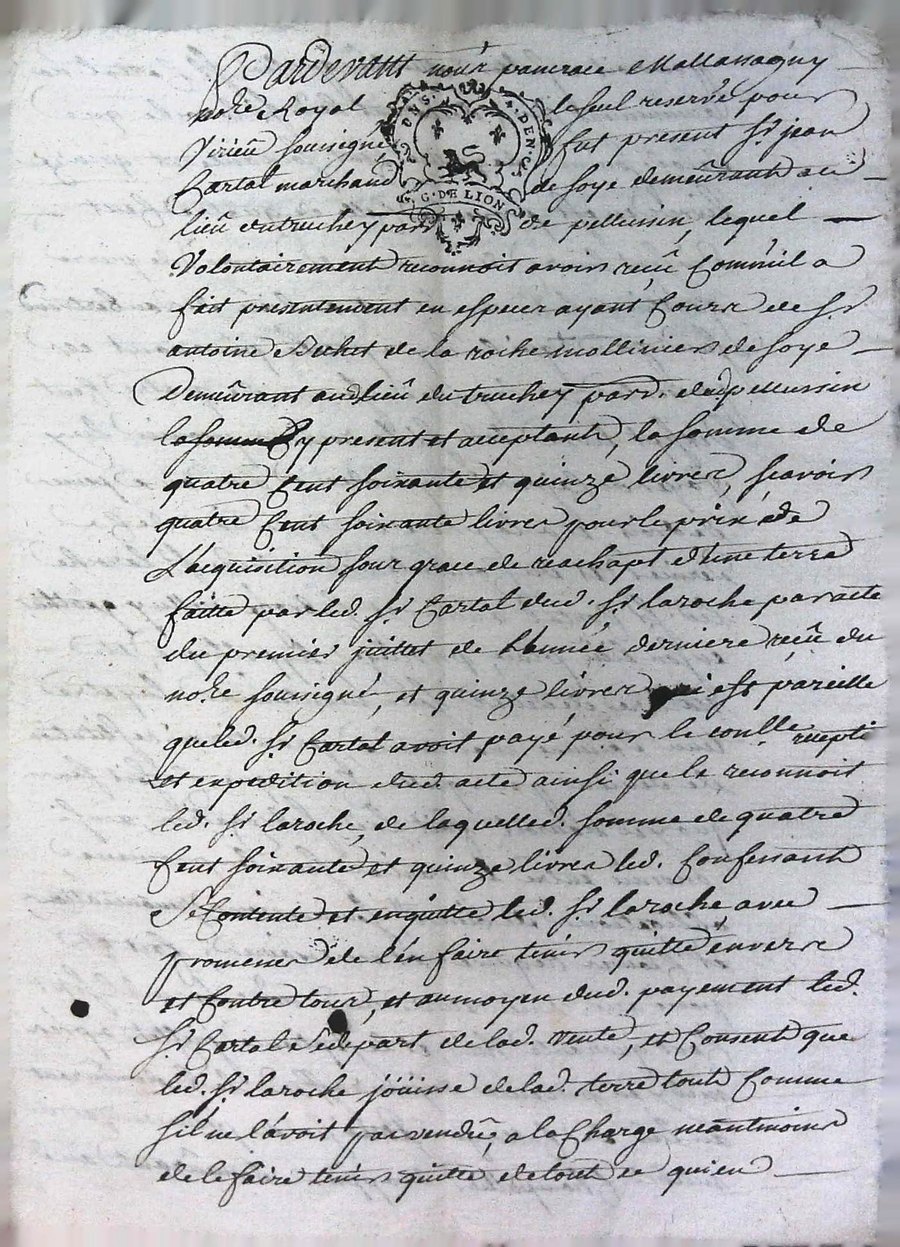 Pardevant nous pancrace Mallassagny
no.re Royal le seul reservé pour
Virieu soussigné fut present Sr. jean
Cartal marchand de soye demeûrant au
lieû du truchey parr. de pellussin, lequel
Volontairement reconnoit avoir reçû Comm'il a
fait presentement en especes ayant Cours de Sr.
antoine Bechet de la roche mollinier de soye
Demeûrant aud. lieû du truchey parr. dud. pellussin
la somme Cy present et acceptant, la somme de
quatre Cent soixante et quinze livres, sçavoir
quatre Cent soixante livres pour le prix de
L'acquisition sour grace de reachapt d'une terre
faitte par led. Sr. Cartal dud. Sr. laroche par acte
du premier juillet de L'année derniere reçû du
no.re soussigné, et quinze livres qui est pareille
que led. Sr. Cartal avoit payé pour le conlle. recepti
et expedition dud. acte ainsi que le reconnoit
led. Sr. laroche, de laquelled. somme de quatre
Cent soixante et quinze livres led. Confessant
Se Contente et en quitte led. Sr. laroche, avec
promesses de l'en faire tenir quitte envers
et Contre tous, et au moyen dud. payement led.
Sr. Cartal Se depart de lad. vente, et Consent que
led. Sr. laroche joüisse de lad. terre tout Comme
s'il ne l'avoit pas vendûe, a la Charge neantmoins
de le faire tenir quitte de tout ce qui en
PNS. DEN.
G. DE LION